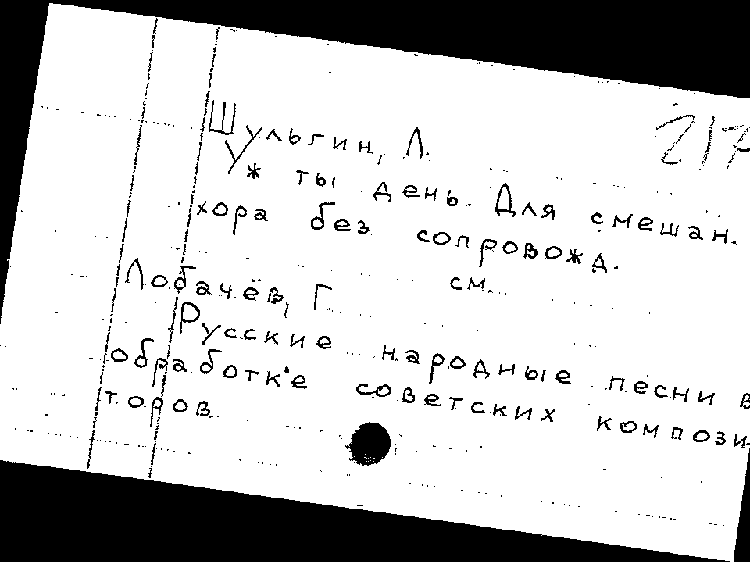 217
Шульгин, Л.
Уж ты день. Для смешан.
хора без сопровожд.
см.
Лобачёв, Г.
Русские народные песни в
обработке советских компози
торов